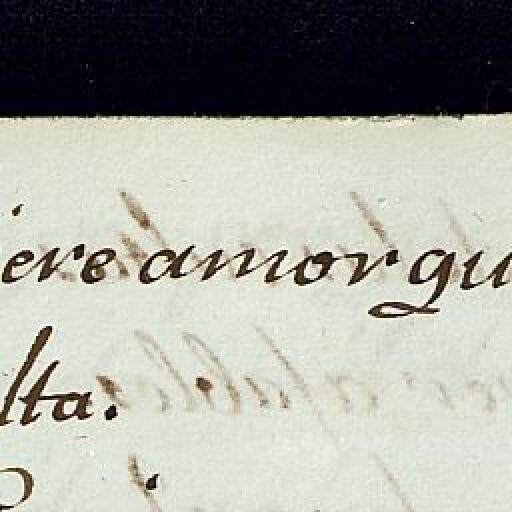 iere amor qu
lta.